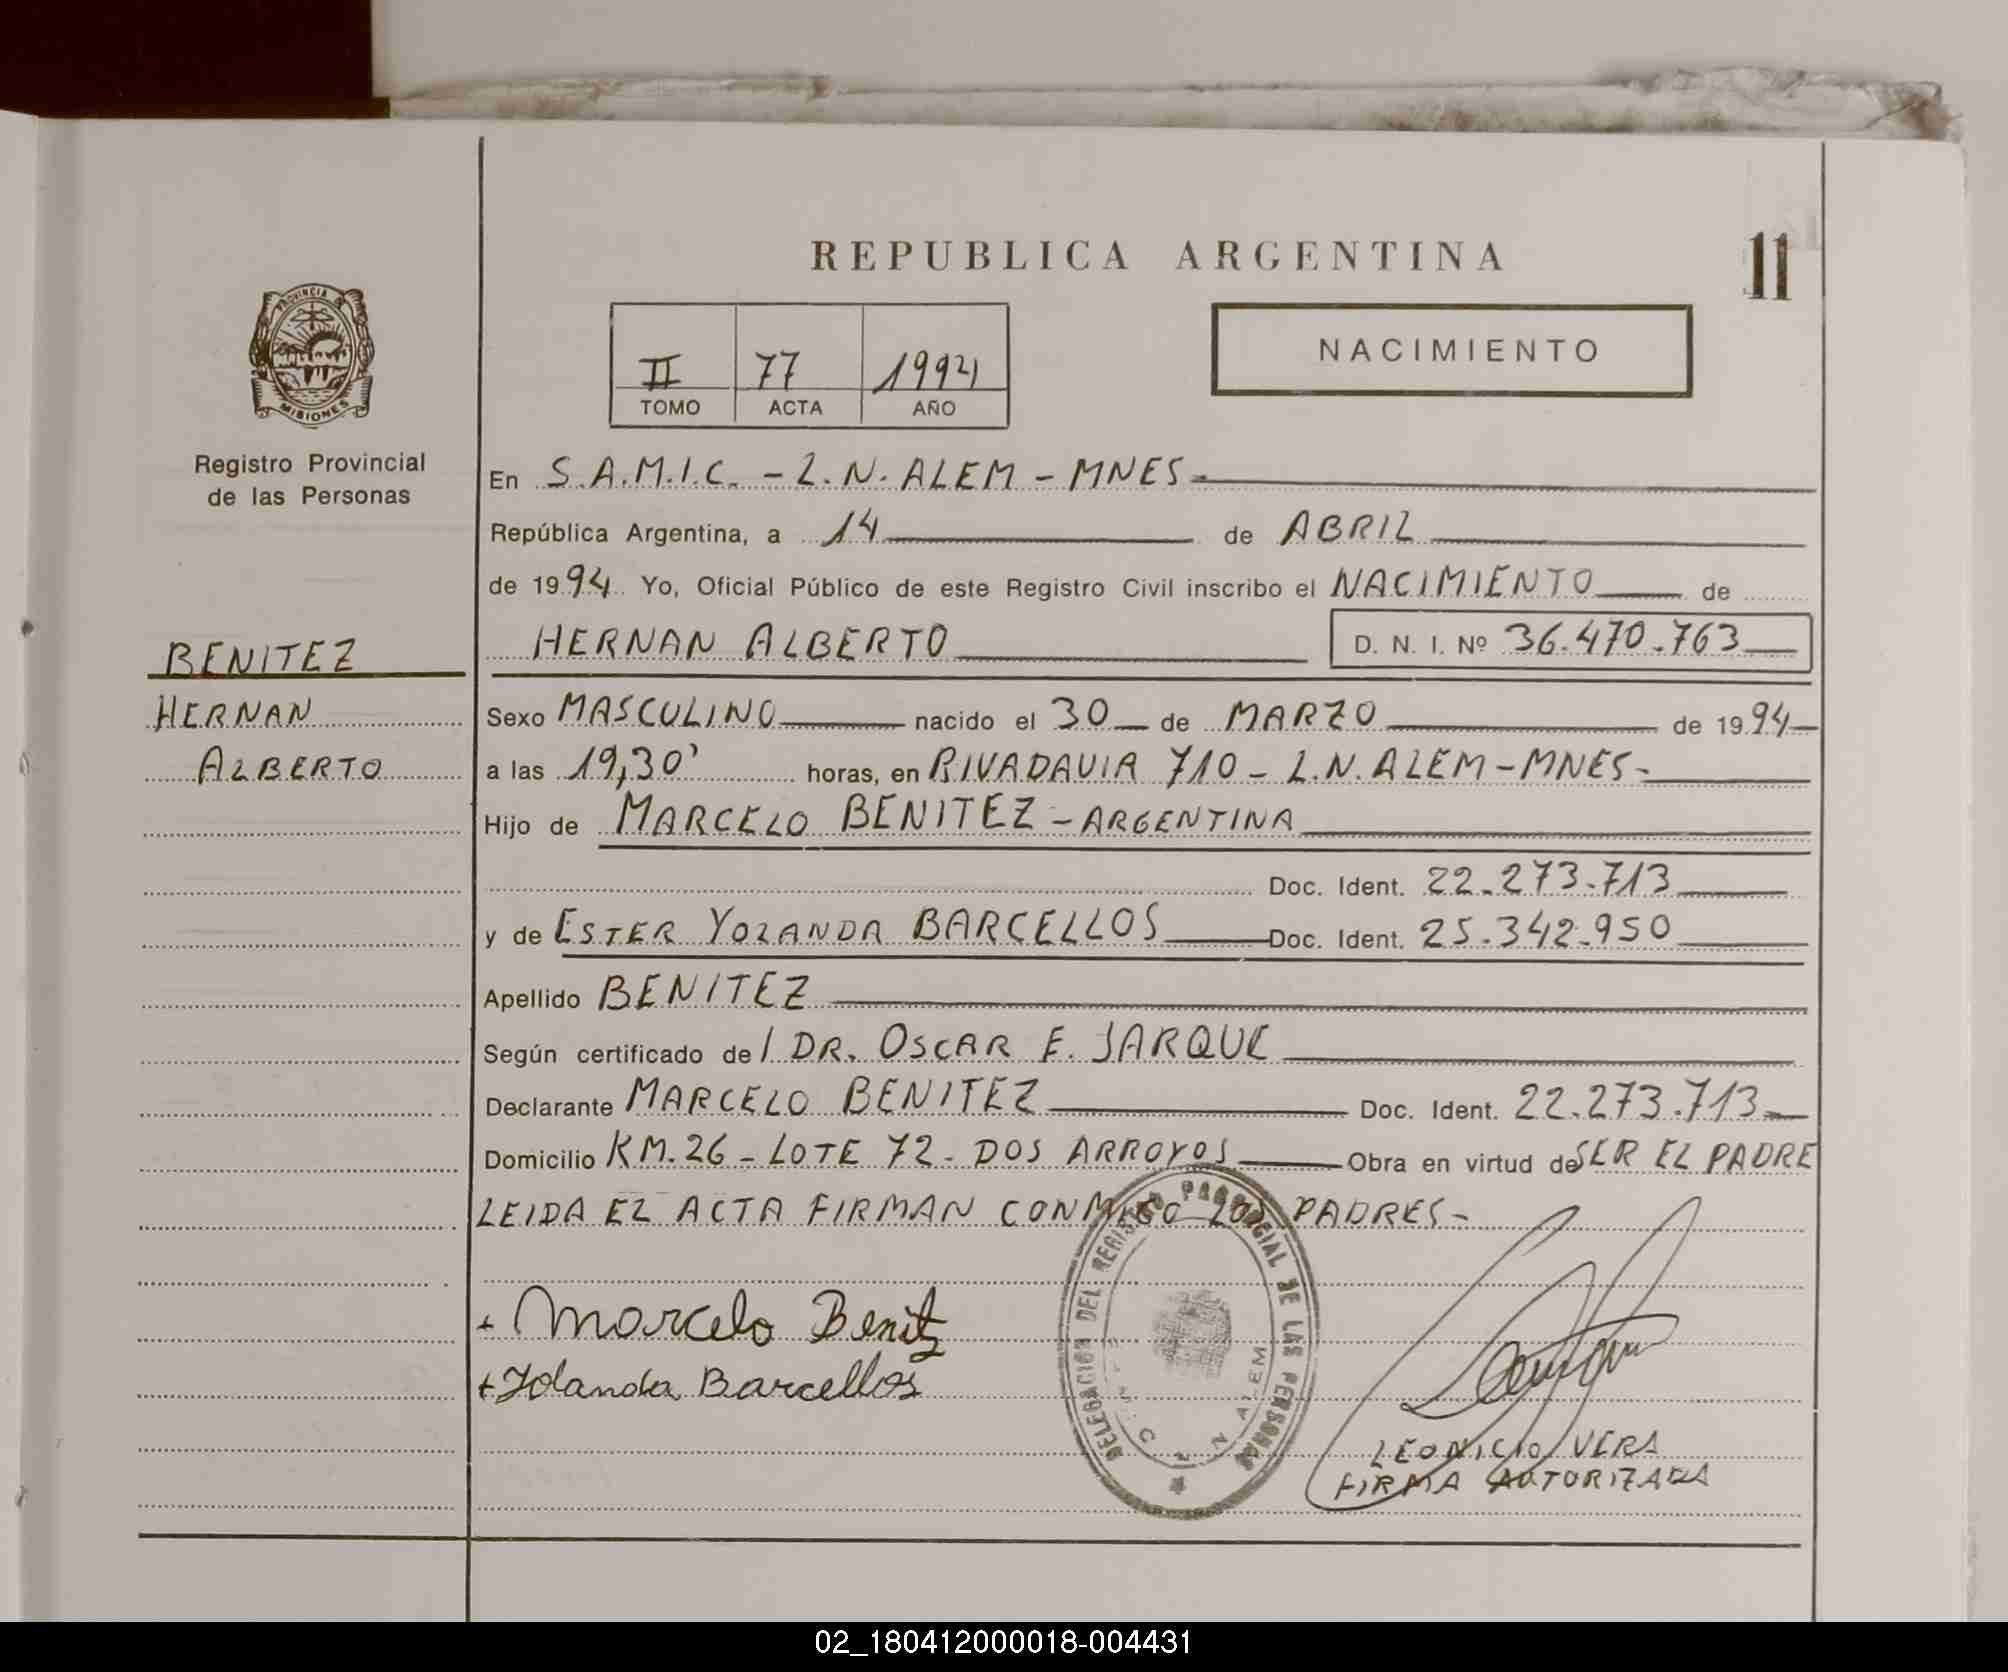 REPUBLICA ARGENTINA
11
PROVINCIA DE
MISIONES
Registro Provincial
de las Personas
II 77 1994
TOMO ACTA AÑO
NACIMIENTO
En S.A.M.I.C. - L.N. ALEM - MNES-
República Argentina, a 14 de ABRIL
de 1994 Yo, Oficial Público de este Registro Civil inscribo el NACIMIENTO de
HERNAN ALBERTO D. N. I. Nº 36.470.763
BENITEZ
HERNAN
ALBERTO
Sexo MASCULINO nacido el 30 de MARZO de 1994
a las 19,30' horas, en RIVADAVIA 710 - L.N. ALEM - MNES-
Hijo de MARCELO BENITEZ - ARGENTINA
Doc. Ident. 22.273.713
y de ESTER YOLANDA BARCELLOS Doc. Ident. 25.342.950
Apellido BENITEZ
Según certificado de / DR. OSCAR E. JARQUE
Declarante MARCELO BENITEZ Doc. Ident. 22.273.713
Domicilio KM. 26 - LOTE 72 - DOS ARROYOS Obra en virtud de SER EL PADRE
LEIDA EL ACTA FIRMAN CONMIGO LOS PADRES-
+ Marcelo Benitz
+ Yolanda Barcellos
DELEGACION DEL REGISTRO PROVINCIAL DE LAS PERSONAS
L N ALEM
LEONICIO VERA
FIRMA AUTORIZADA
02_180412000018-004431